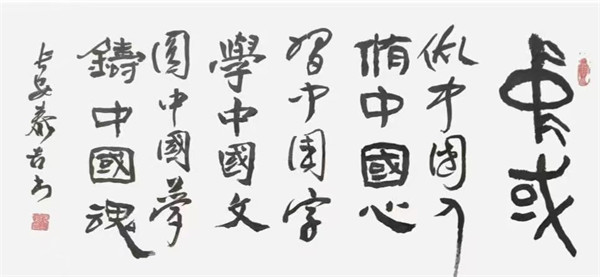 中或
做中國人
脩中國心
習中國字
學中國文
圓中國夢
鑄中國魂
长安泰吉书